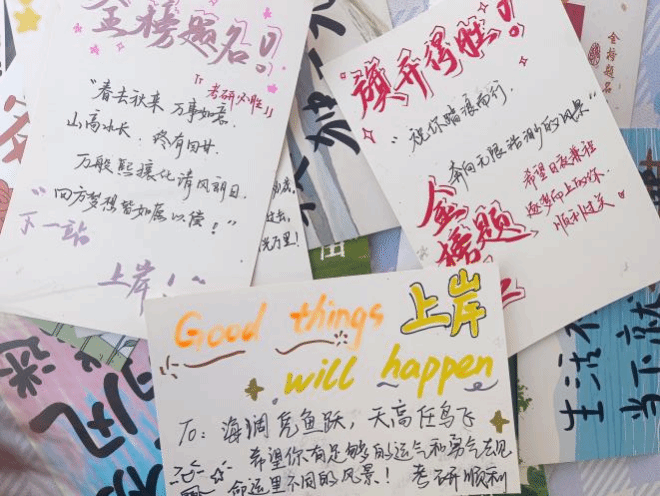 金榜题名!
「考研必胜」
"春去秋来 万事如意.
山高水长, 终有回甘.
万般熙攘化清风朗日.
四方梦想皆如愿以偿!"
下一站
上岸!
旗开得胜!
"祝你踏浪而行,
奔向无限浩瀚的风景"
希望日夜兼程
顺利过关
金榜题
Good things 上岸
will happen
To: 海阔凭鱼跃，天高任鸟飞
希望你有足够的运气和勇气去见
命运里不同的风景! 考研顺利
金榜题名
生活
当下就